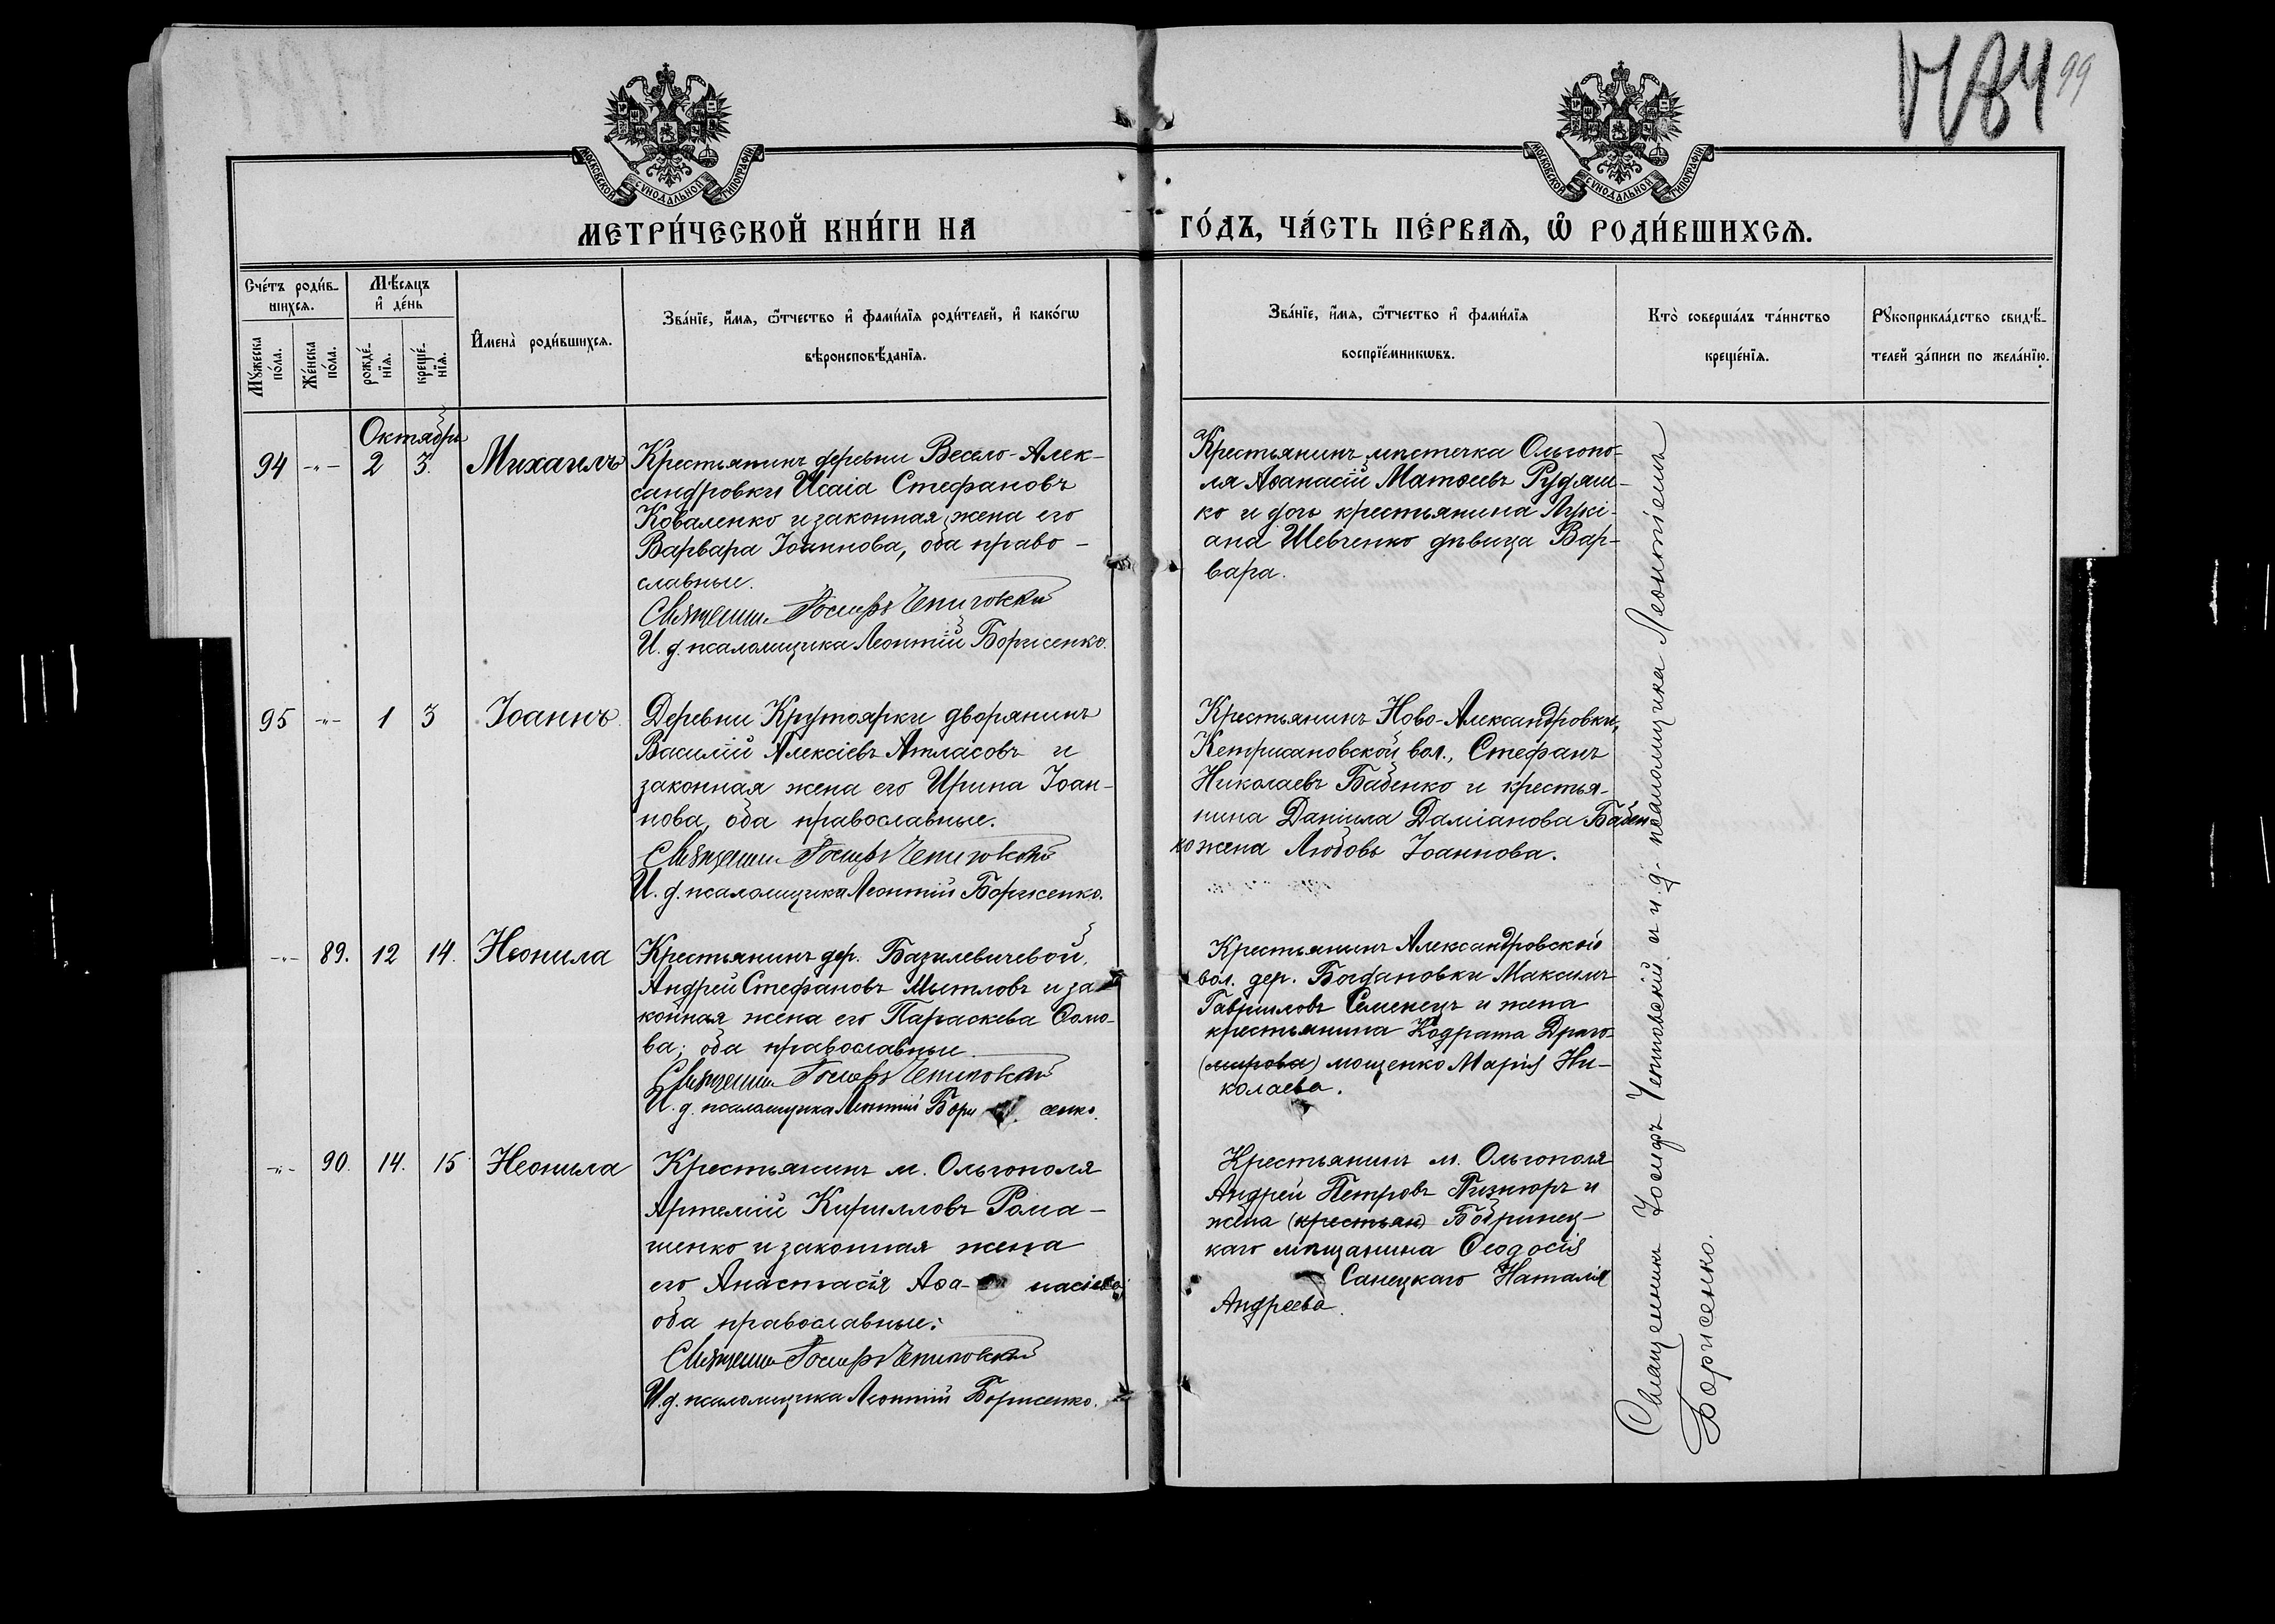 1184 99
МОСКОВСКОЙ СѴНОДАЛЬНОЙ ТИПОГРАФІИ
МОСКОВСКОЙ СѴНОДАЛЬНОЙ ТИПОГРАФІИ
МЕТРИ́ЧЕСКОЙ КНИ́ГИ НА ГО́ДЪ, ЧА́СТЬ ПЕ́РВАѦ, Ѡ҆ РОДИ́ВШИХСѦ.
Сче́тъ роди́в-
шихсѧ.
Мꙋ́жеска по́ла.
Же́нска по́ла.
Мѣ́сяцъ
и҆ де́нь
рожде́-нїѧ.
креще́-нїѧ.
И҆мена̀ роди́вшихсѧ.
Зва́нїе, и҆́мѧ, ѻ҆́тчество и҆ фами́лїѧ роди́телей, и҆ како́гѡ
вѣроисповѣ́данїѧ.
Зва́нїе, и҆́мѧ, ѻ҆́тчество и҆ фами́лїѧ
воспрїе́мникѡвъ.
Кто̀ соверша́лъ та́инство
креще́нїѧ.
Рꙋкоприкла́дство свидѣ́-
телей за́писи по жела́нїю.
Октябрь
94 -"- 2 3. Михаилъ
Крестьянинъ деревни Весело-Алек-
сандровки Исаія Стефановъ
Коваленко и законная жена его
Варвара Іоаннова, оба право-
славные.
Священни. Іосифъ
И. д. псаломщика Леонтій Борисенко.
Крестьянинъ мѣстечка Ольгопо-
ля Аѳанасій Матѳеевъ Рудяш-
ко и дочь крестьянина Лукі-
ана Шевченко дѣвица Вар-
вара.
95 -"- 1 3 Іоаннъ.
Деревни Крутоярки дворянинъ
Василій Алексіевъ Атласовъ и
законная жена его Ирина Іоан-
нова, оба православные.
Священни. Іосифъ
И. д. псаломщика Леонтій Борисенко.
Крестьянинъ Ново-Александровки,
Кетрисановской вол., Стефанъ
Николаевъ Бабенко и крестья-
нина Даніила Даміанова Бабен
ко жена Любовь Іоаннова.
-"- 89. 12 14. Неонила
Крестьянинъ дер. Базилевичевой,
Андрей Стефановъ Мытловъ и за
конная жена его Параскева Ѳомо-
ва; оба православные
Священни. Іосифъ
И. д. псаломщика Леонтій Бори сенко.
Крестьянинъ Александровской
вол. дер. Богдановки Максимъ
Гаврииловъ Семенецъ и жена
крестьянина Кодрата Драго-
(мирова) мощенко Марія Ни-
колаева.
-"- 90. 14. 15 Неонила
Крестьянинъ м. Ольгополя
Артемій Кирилловъ Рома-
шенко и законная жена
его Анастасія Аѳа- насіева;
оба православные.
Священни. Іосифъ
И. д. псаломщика Леонтій Борисенко.
Крестьянинъ м. Ольгополя
Андрей Петровъ и
жена (крестьян) Бобринец-
каго мѣщанина Ѳеодосія
Санецкаго Наталія
Андреева.
Священникъ Іосифъ и и. д. псаломщика Леонтіемъ
Борисенко.